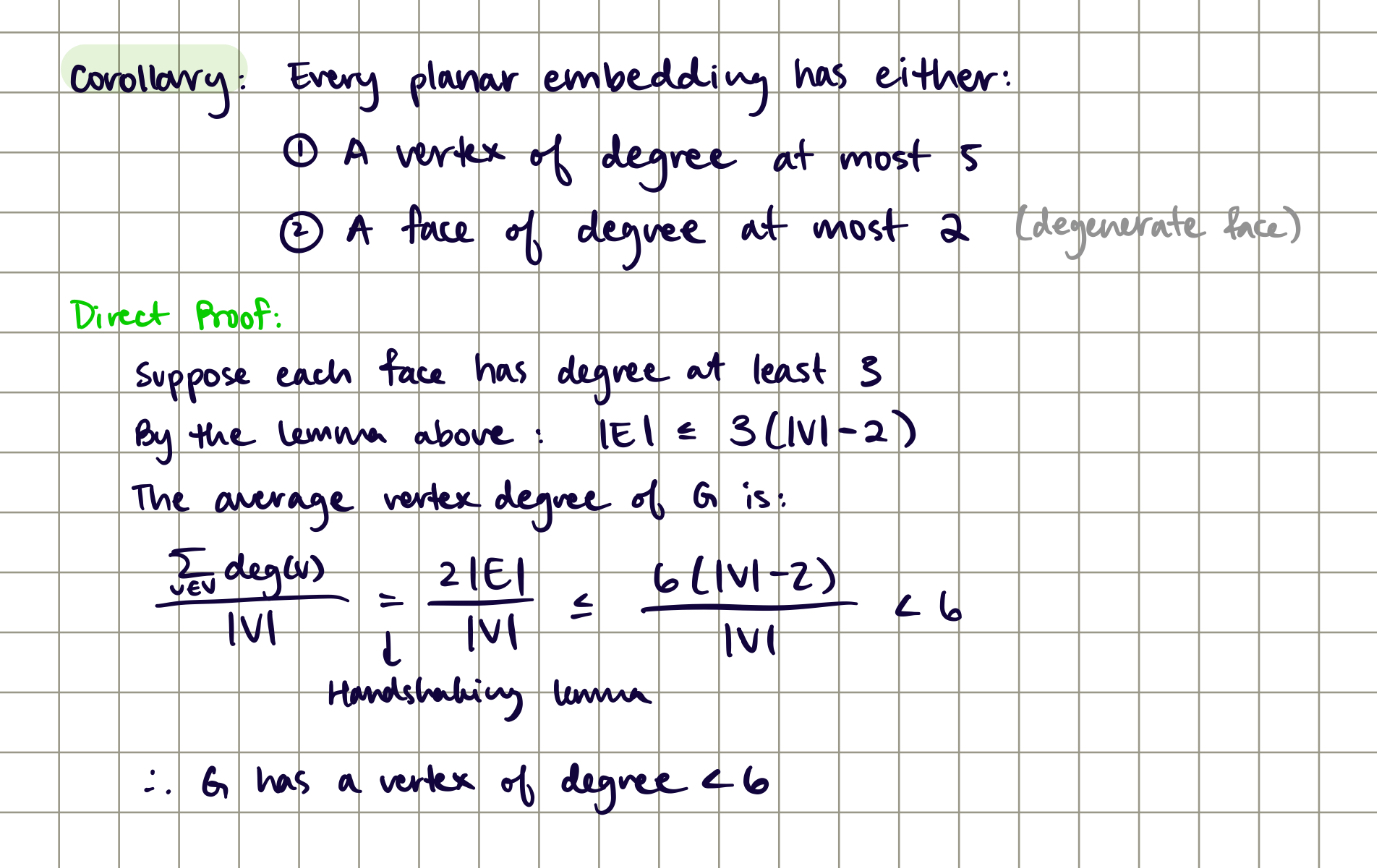 Corollary: Every planar embedding has either:
① A vertex of degree at most 5
② A face of degree at most 2 (degenerate face)
Direct Proof:
Suppose each face has degree at least 3
By the lemma above: |E| ≤ 3(|V|-2)
The average vertex degree of G is:
∑_{v∈V} deg(v) / |V| = 2|E| / |V| ≤ 6(|V|-2) / |V| < 6
↓
Handshaking lemma
∴ G has a vertex of degree < 6